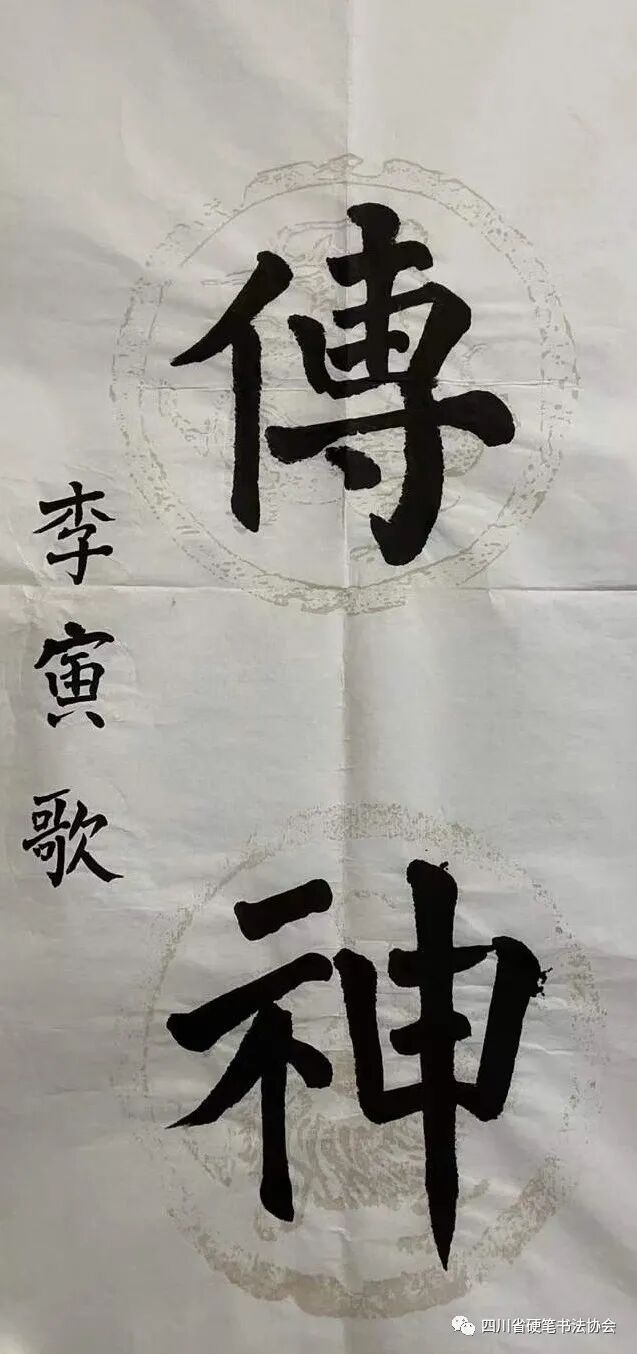 傳神
李寅歌
四川省硬笔书法协会